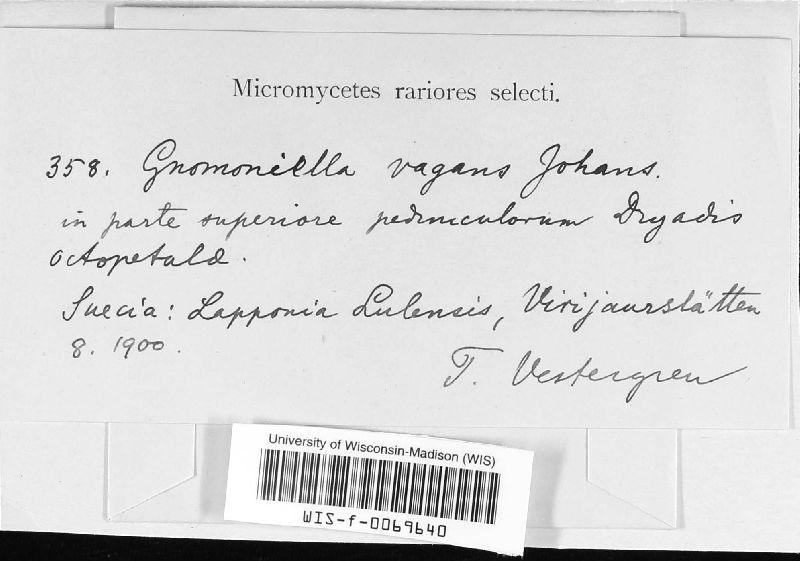 Micromycetes rariores selecti.
358. Gnomoniella vagans Johans.
in parte superiore pedunculorum Dryadis
octopetalæ.
Suecia: Lapponia Lulensis, Virijaurslätten
8. 1900.
T. Vestergren
University of Wisconsin-Madison (WIS)
WIS-f-0069640